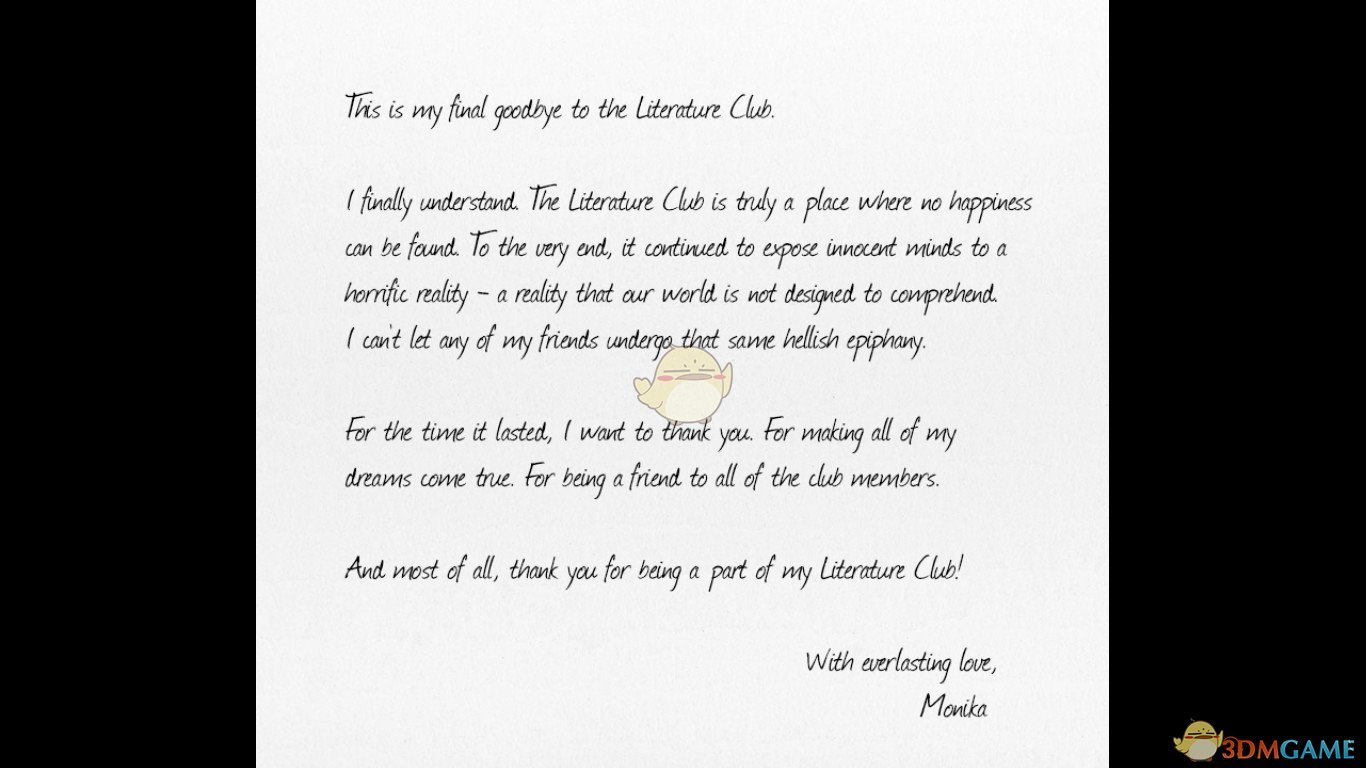 This is my final goodbye to the Literature Club.
I finally understand. The Literature Club is truly a place where no happiness
can be found. To the very end, it continued to expose innocent minds to a
horrific reality - a reality that our world is not designed to comprehend.
I can't let any of my friends undergo that same hellish epiphany.
For the time it lasted, I want to thank you. For making all of my
dreams come true. For being a friend to all of the club members.
And most of all, thank you for being a part of my Literature Club!
With everlasting love,
Monika
3DMGAME